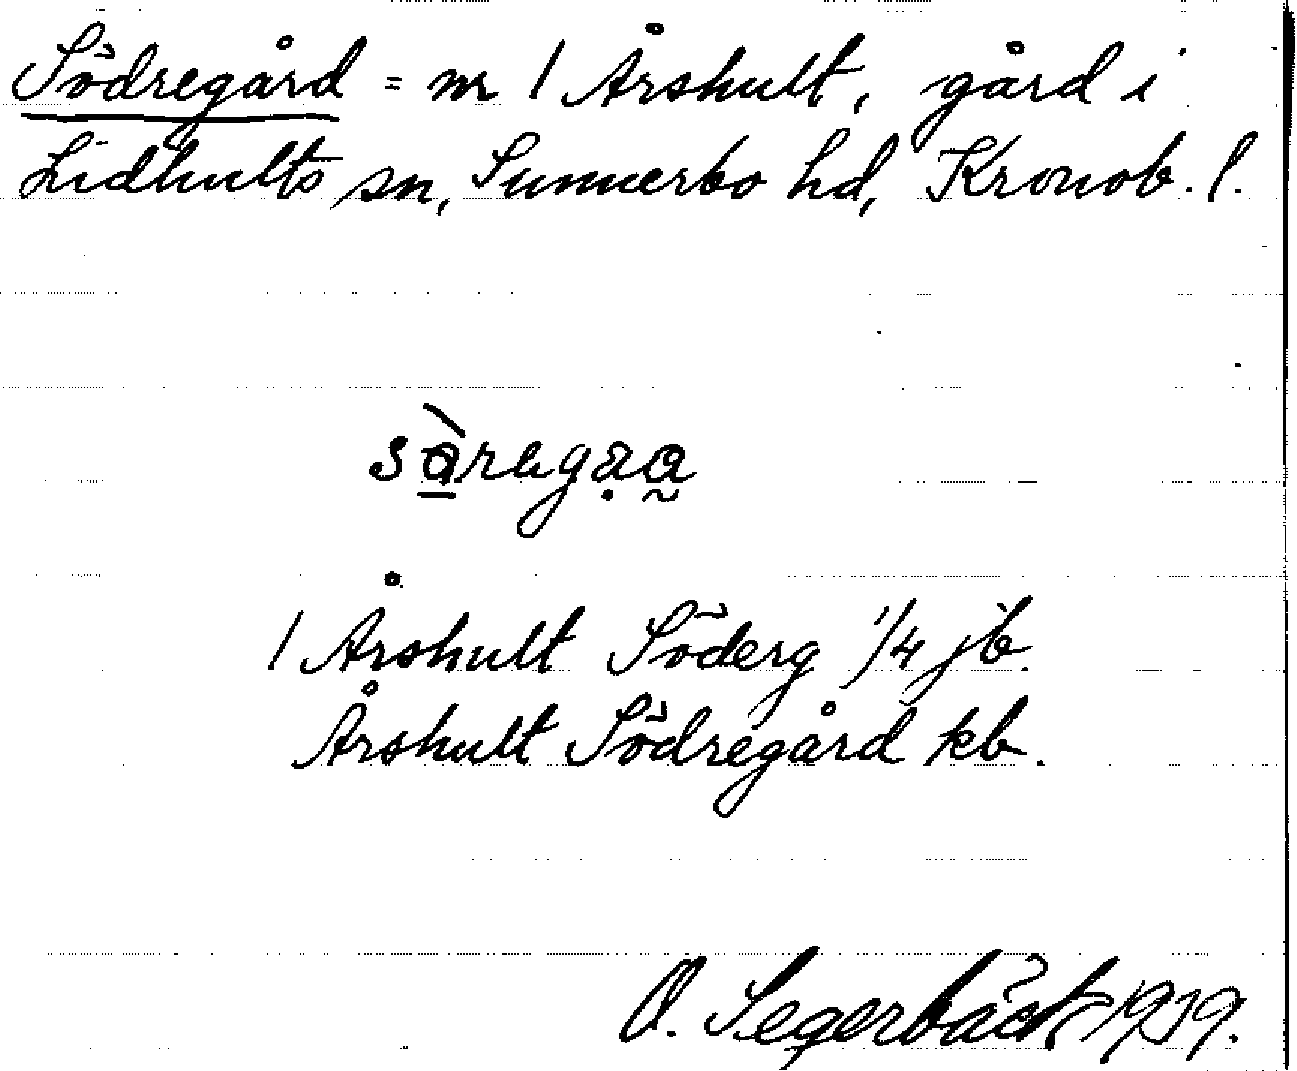 Södregård = nr 1 Årshult, gård i
Lidhults sn, Sunnerbo hd, Kronob. l.
1 Årshult Söderg 1/4 jb.
Årshult Södregård kb.
O. Segerbäck 1939.